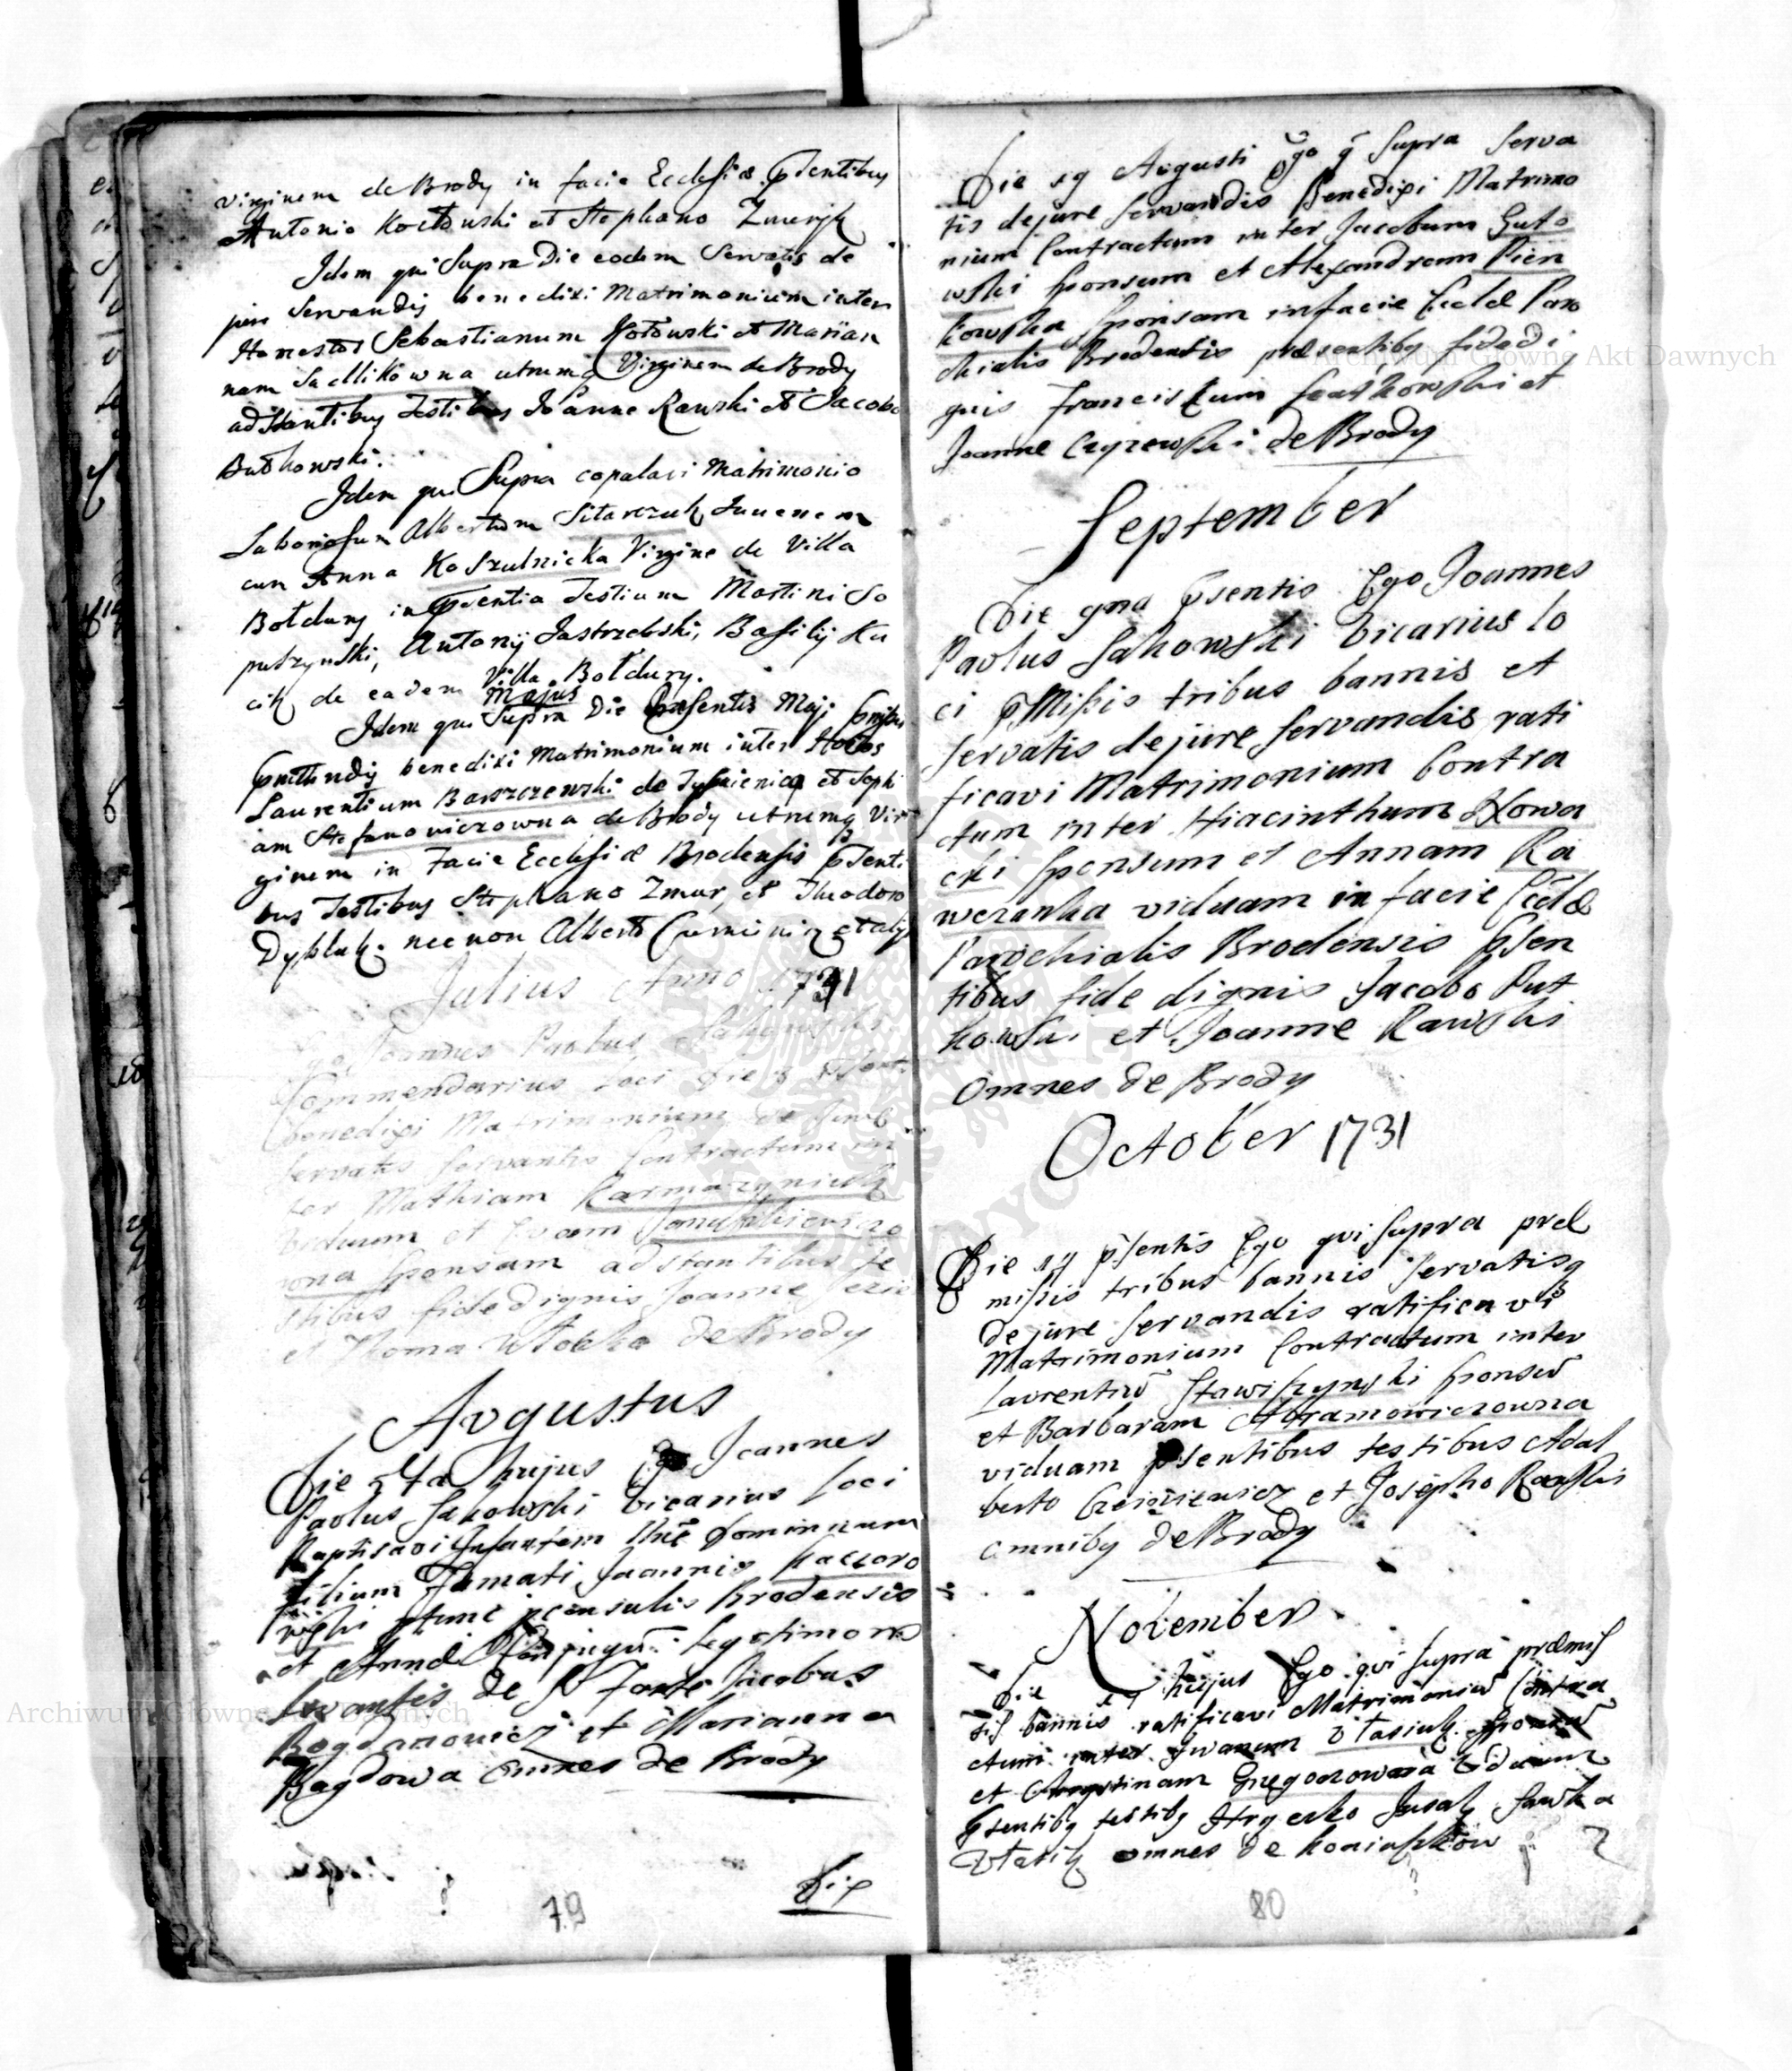 virginem de Brody in facie Ecclesiæ pſentibus
Antonio Kocłowski et Stephano
Idem qui Supra Die eodem Servatis de
jure Servandis benedixi Matrimonium inter
Honestos Sebastianum Kotowski et Marian
nam Sadlikowna utrumq Virginem de Brody
adstantibus Testibus Joanne Rawski et Jacobo
Butkowski.
Idem qui Supra copulavi Matrimonio
Laboriosum Albertum Sitarczuk Juvenem
cum Anna Koszulnicka Virgine de Villa
Bołdury in pſentia Testium Martini So
putzynski, Antonij Jastrzebski, Basilij Ku
cik de eadem Villa Bołdury.
Majus
Idem qui Supra Die præsentis Maji
benedixi Matrimonium inter
Laurentium Barszczewski de et Soph
iam Stefanowiczowna de Brody utrumq Vir
ginem in Facie Ecclesiæ Brodensis pſenti
bus Testibus Stephano Zmur, et Theodoro
Dybluk. necnon Alberto et alijs
Julius Anno 1731
Ego Joannes Paolus Sakowski
Commendarius Loci Die
benedixi Matrimonium de jure
servatis servandis Contractum in
ter Mathiam Karmazyniuk
viduum et Evam
wna sponsam adstantibus te
stibus fide dignis Joanne
et Thoma de Brody
Avgustus
Die 5ta hujus Ego Joannes
Paolus Sakowski Vicarius Loci
Baptisavi Infantem Nne Dominicum
filium Famati Joannis Kaczoro
wski Proconsulis Brodensis
et Annæ Conjugum legitimorum
Levantes de S. Fonte Jacobus
Bogdanowicz et Marianna
Bagdowa omnes de Brody
Die
79
Die 19 Avgusti Ego q Supra Serva
tis dejure servandis Benedixi Matrimo
nium Contractum inter Jacobum Guto
wski sponsum et Alexandram Pien
kowska sponsam in facie Eccłæ Paro
chialis Brodensis præsentibus fide di
gnis Franciskum et
Joanne Czyzewski de Brody
September
Die gna pſentis Ego Joannes
Paolus Sakowski Vicarius lo
ci pmissis tribus bannis et
servatis dejure servandis rati
ficavi Matrimonium Contra
ctum inter Hiacinthum Nowa
cki sponsum et Annam Ra
wczanka viduam in facie Eccłæ
Parochialis Brodensis pſen
tibus fide dignis Jacobo Put
kowski et Joanne Rawski
omnes de Brody
October 1731
Die 19 pſentis Ego qui supra præ
missis tribus bannis servatisq
de jure servandis ratificavi
Matrimonium Contractum inter
Laurentiũ Stawiszynski sponsũ
et Barbaram Abramowiczowna
viduam pſentibus testibus Adal
berto et Josepho Rawski
omnibus de Brody
November
Die 19 hujus Ego qvi supra præmiſ
sis bannis ratificavi Matrimoniũ Contra
ctum inter Iwanum Vtasiuk sponsum
et Gregorzowna Viduam
pſentibus testibus Hryczko Jusak Sawka
omnes de Koniuszkow
80